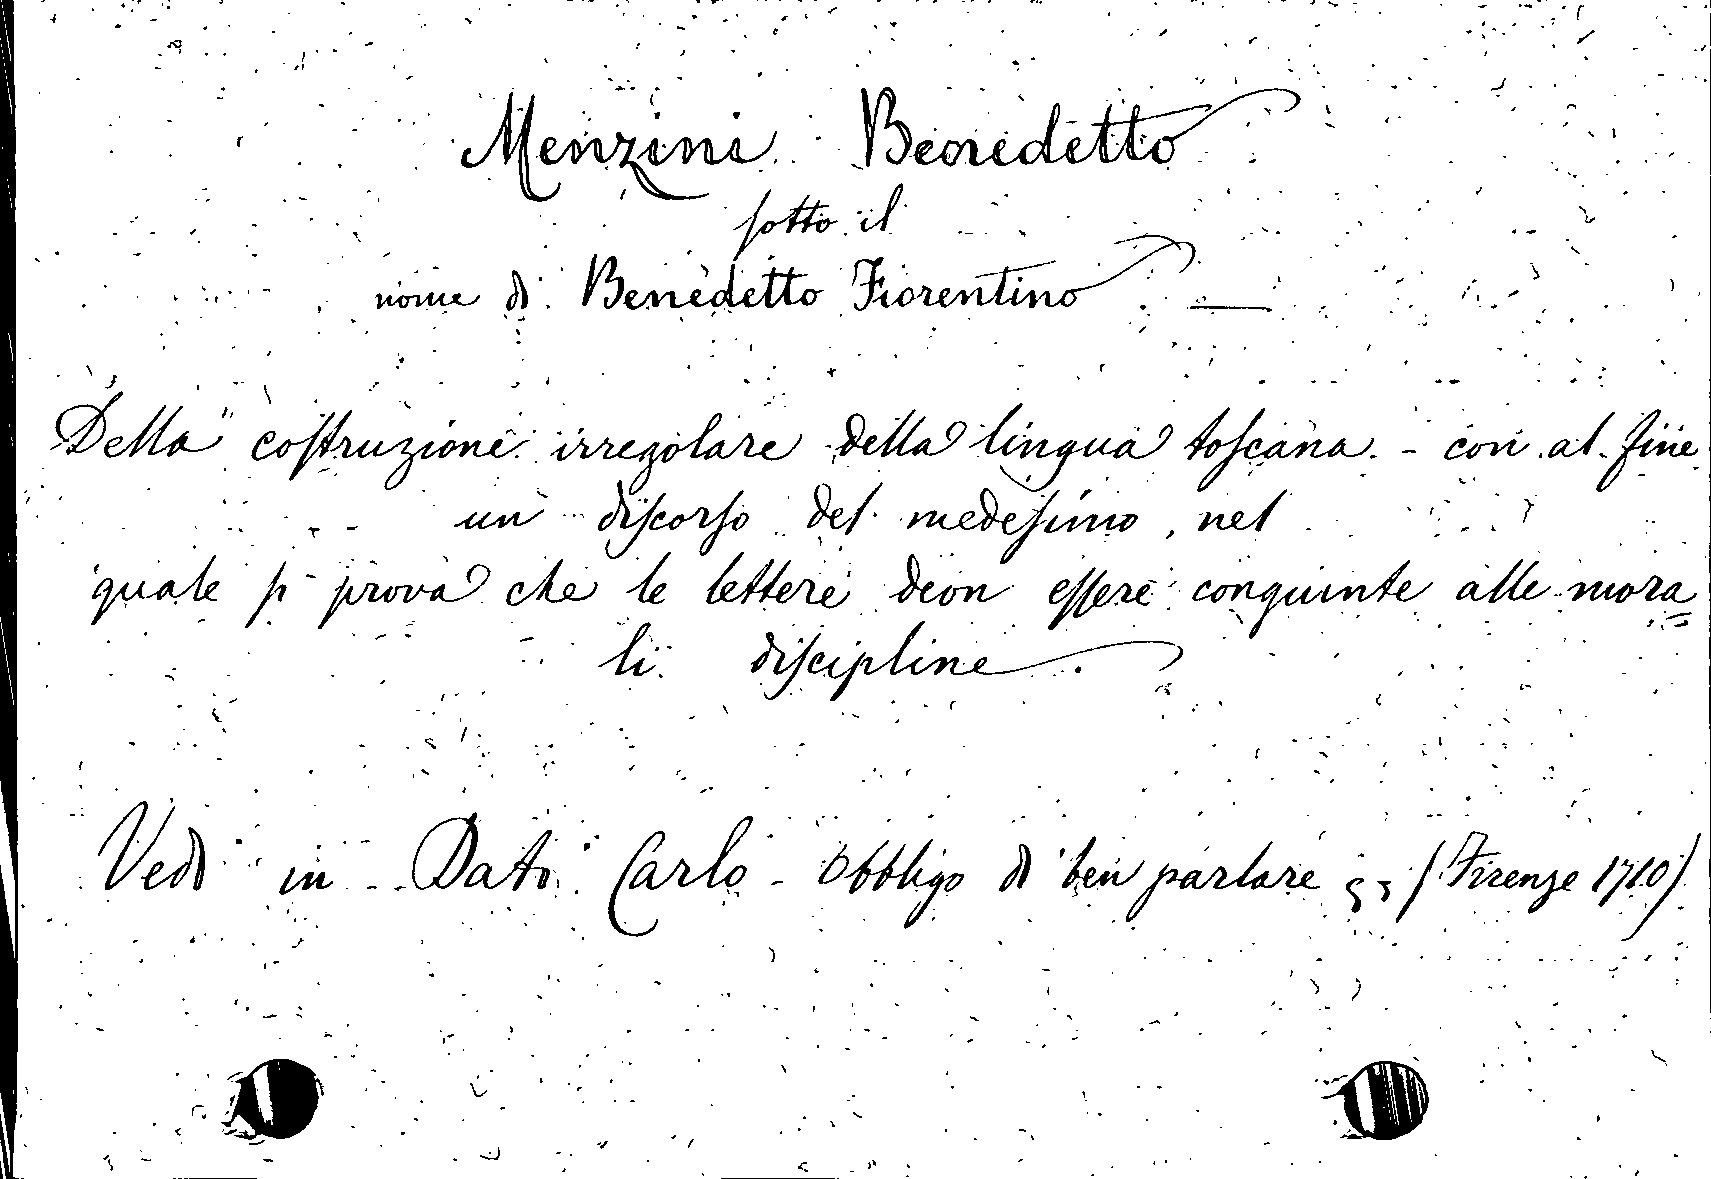 Menzini Benedetto
sotto il
nome di Benedetto Fiorentino —
Della costruzione irregolare della lingua toscana - con al fine
un discorso del medesimo, nel
quale si prova che le lettere deon essere conguinte alle mora=
li discipline.
Vedi in Dati Carlo - Obbligo di ben parlare (Firenze 1710)